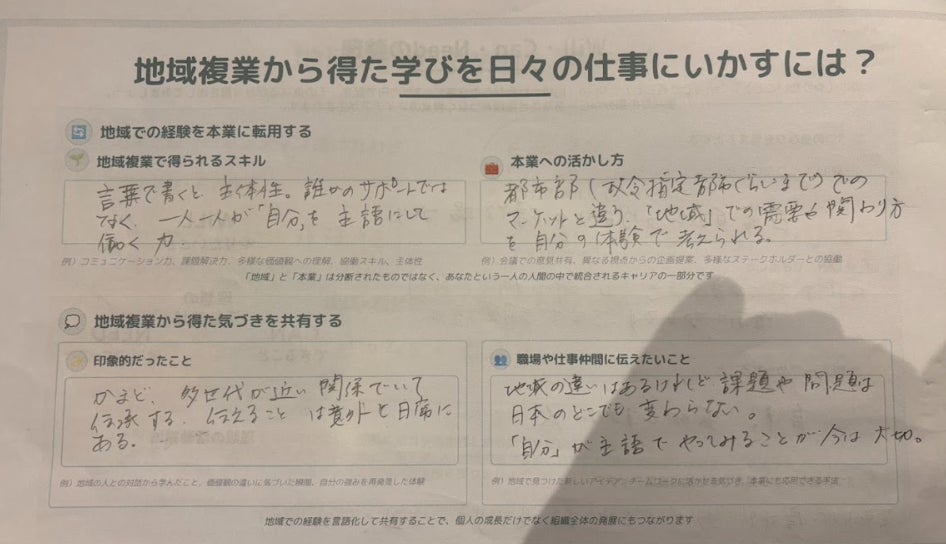 地域複業から得た学びを日々の仕事にいかすには？
地域での経験を本業に転用する
地域複業で得られるスキル
言葉で書くと主体性。誰かのサポートでは
なく、一人一人が「自分」を主語にして
働く力
例）コミュニケーション力、課題解決力、多様な価値観への理解、協働スキル、主体性
本業への活かし方
都市部（政令指定都市ぐらいまで）での
マーケットと違う、「地域」での需要や関わり方
を自分の体験で考えられる。
例）会議での意見共有、異なる視点からの企画提案、多様なステークホルダーとの協働
「地域」と「本業」は分断されたものではなく、あなたという一人の人間の中で統合されるキャリアの一部分です
地域複業から得た気づきを共有する
印象的だったこと
かまど、多世代が近い関係でいて
伝承する、伝えることは意外と日常に
ある。
例）地域の人との対話から学んだこと、価値観の違いに気づいた瞬間、自分の強みを再発見した体験
職場や仕事仲間に伝えたいこと
地域の違いはあるけれど課題や問題は
日本のどこでも変わらない。
「自分」が主語でやってみることが今は大切。
例）地域で見つけた新しいアイデア、チームワークに活かせる気づき、本業にも応用できる手法
地域での経験を言語化して共有することで、個人の成長だけでなく組織全体の発展にもつながります